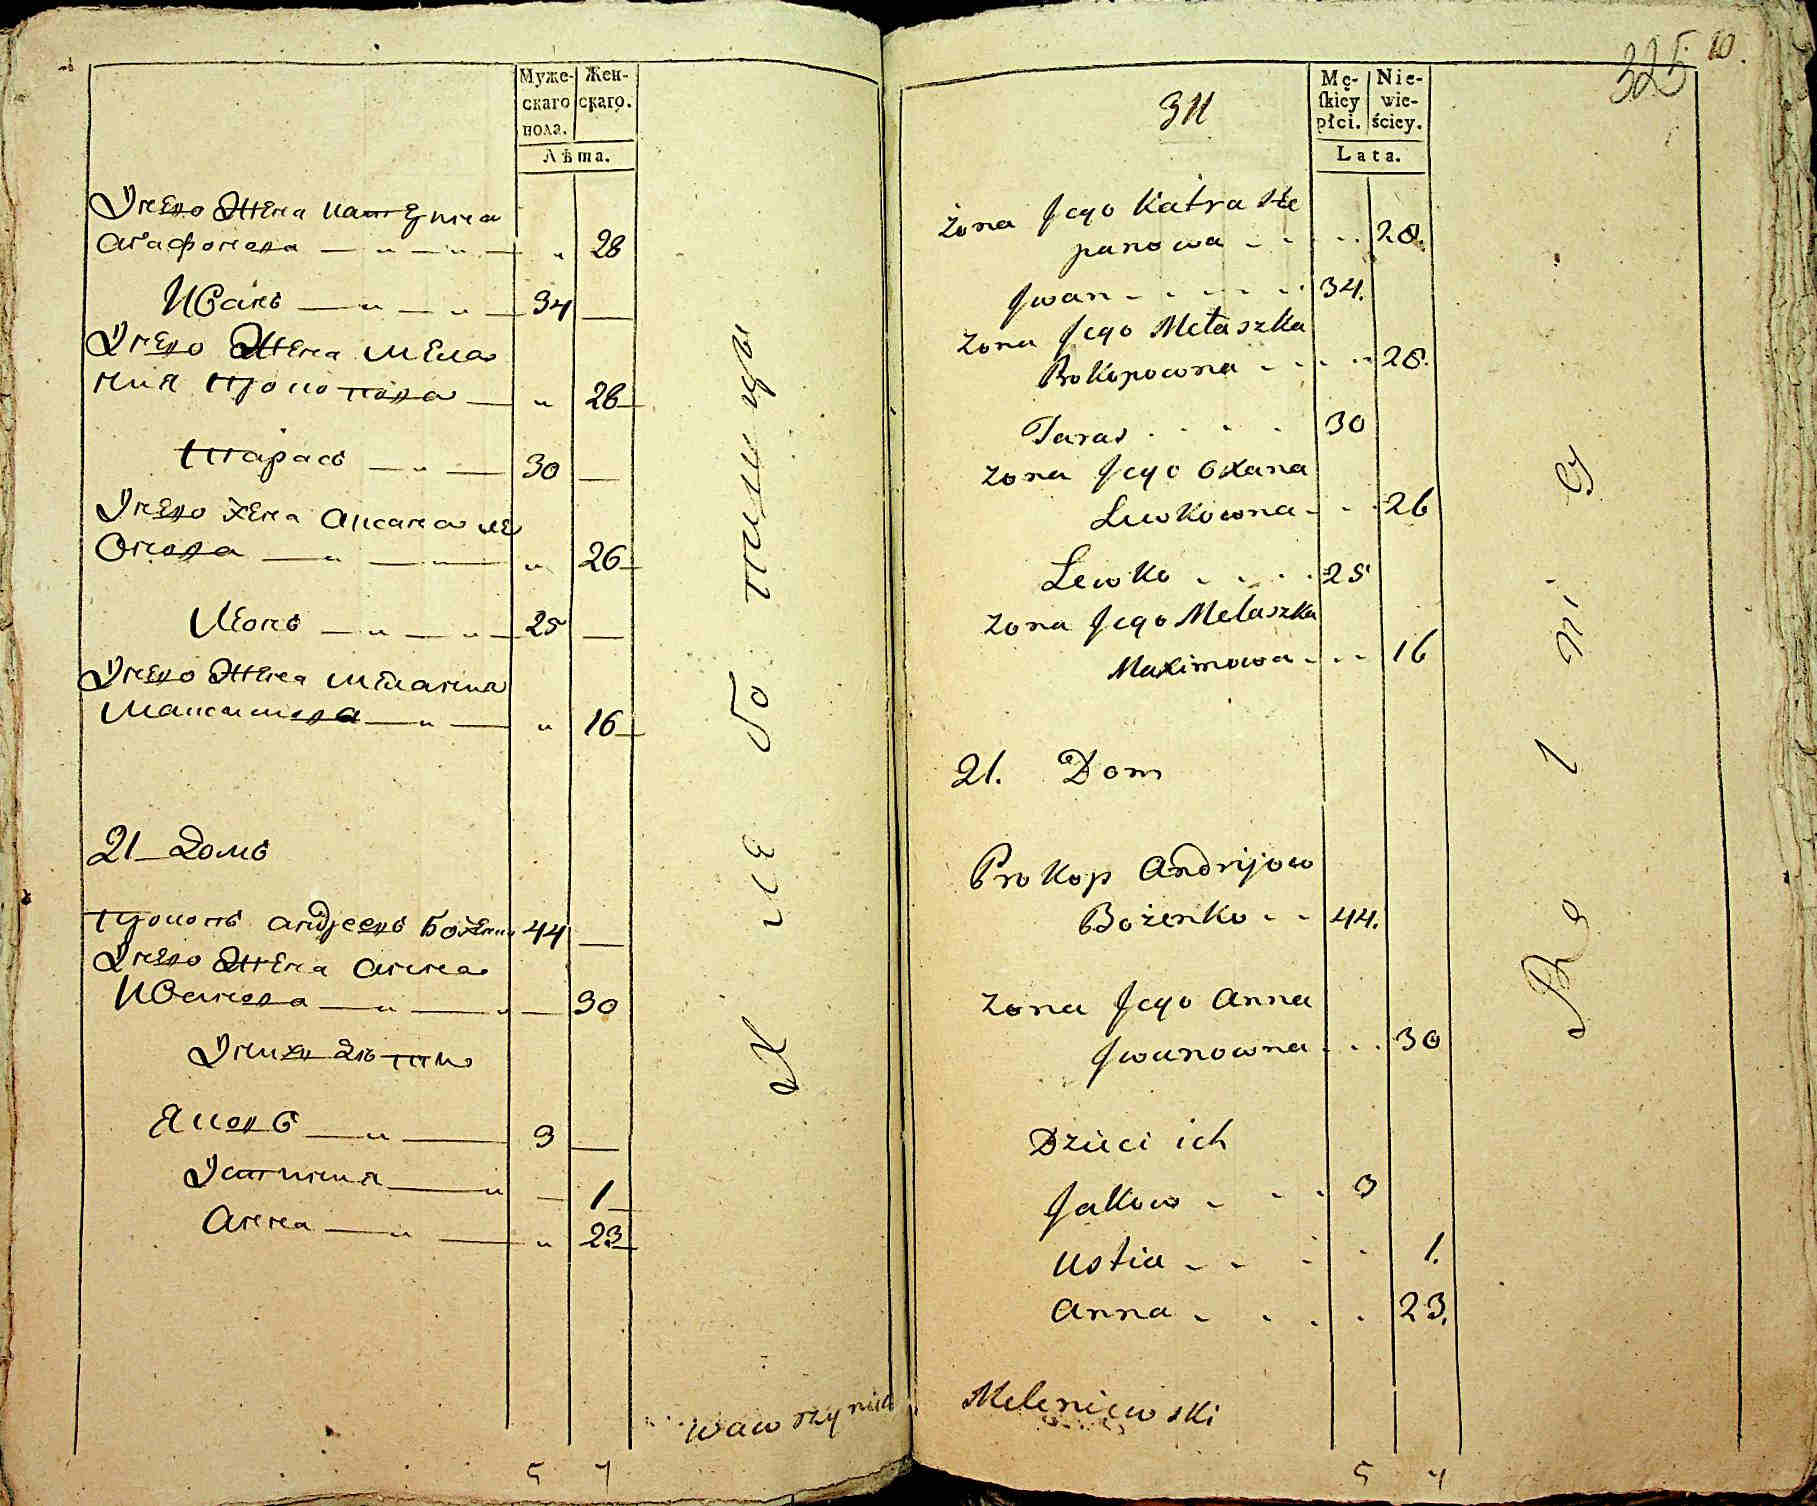 Муже-
скаго
пола.
Жен-
скаго.
Лѣта.
Унего Жена Катерина
Агафонова — „ — „ — „ 28
Иванъ — „ — „ — 34 —
Унего Жена Мела
ния Прокопова — „ 28
Тарасъ — „ — 30 —
Унего жена Аксана Ле
онова — „ — „ 26
Леонъ — „ — „ — 25 —
Унего Жена Мелания
Максимова — „ — „ 16
21 Домъ
Прокопъ Андреевъ Боженко 44 —
Унего Жена Анна
Иванова — „ — „ — 30
Унихъ дѣти
Яковъ — „ — 3 —
Устиния — „ — 1
Анна — „ — „ 23
5 7
Хлеботницы
Wawrzyniec
325 10.
311
Mę-
ſkiey
płci.
Nie-
wie-
ściey.
Lata.
żona Jego Katra Ste
panowa - - - - 28.
Jwan - - - - - 34.
żona Jego Melaszka
Prokopowna - - - - 28.
Taras . . . . 30
żona Jego Oxana
Lewkowna - - - 26
Lewko - - - - 25
żona Jego Melaszka
Maximowa - - - 16
21. Dom
Prokop Andrijow
Bożenko - - 44.
żona Jego Anna
Jwanowna - - - 30
Dzieci ich
Jakow - - - 3
Ustia - - - - 1.
Anna - - - - 23.
Meleniewski
5 7
Rolnicy